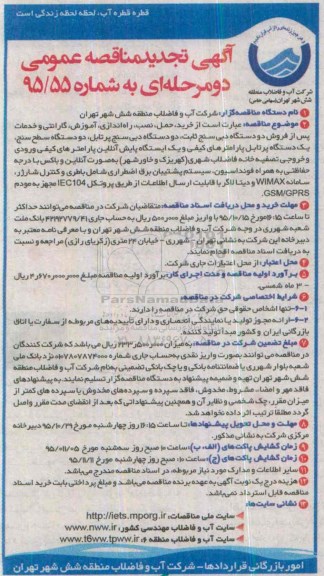 قطره قطره آب، لحظه لحظه زندگی است
آگهی تجدیدمناقصه عمومی
دومرحله‌ای به شماره ۹۵/۵۵
شرکت آب و فاضلاب منطقه
شش شهر تهران(سهامی خاص)
۱ نام دستگاه مناقصه‌گزار: شرکت آب و فاضلاب منطقه شش شهر تهران
۲ موضوع مناقصه: عبارت است از خرید، حمل، نصب، راه‌اندازی، آموزش، گارانتی و خدمات
پس از فروش دو دستگاه دبی سنج ثابت، دو دستگاه دبی سنج پرتابل، دو دستگاه سطح سنج،
یک دستگاه پرتابل پارامترهای کیفی و یک ایستگاه پایش آنلاین پارامترهای کیفی ورودی
و خروجی تصفیه خانه فاضلاب شهری (کهریزک و خاورشهر) به‌صورت آنلاین و باکس با درجه
حفاظتی به همراه فونداسیون، سیستم پشتیبان برق اضطراری شامل باطری و کنترل شارژر،
سامانه WIMAX و دیتا لاگر با قابلیت ارسال اطلاعات از طریق پروتکل IEC104 مجهز به مودم
GSM/GPRS.
۳ مهلت خرید و محل دریافت اسناد مناقصه: متقاضیان شرکت در مناقصه می‌توانند حداکثر
تا ساعت ۱۶:۱۵ مورخ ۹۵/۱۰/۱۵ با واریز مبلغ ۵۰۰٫۰۰۰ ریال به حساب جاری بانک ملت
شعبه شهرری در وجه شرکت آب و فاضلاب منطقه شش شهر تهران و با معرفی نامه معتبر به
دبیرخانه این شرکت به نشانی تهران - شهرری - خیابان ۲۴ متری (زکریای رازی) مراجعه و نسبت
به دریافت اسناد مناقصه اقدام نمایند.
۴ محل اعتبار: از محل اعتبارات جاری شرکت.
۵ برآورد اولیه مناقصه و مدت اجرای کار: برآورد اولیه مناقصه مبلغ ریال
- ۳ ماه شمسی.
۶ شرایط اختصاصی شرکت در مناقصه:
۱-۶- تنها اشخاص حقوقی حق شرکت در مناقصه را دارند.
۲-۶- ارائه مجوز تولید یا نمایندگی انحصاری و دارای تأییدیه‌های مربوطه از سفارت یا اتاق
بازرگانی ایران و کشور مبدا تولید کننده.
۷ مبلغ تضمین شرکت در مناقصه: به میزان ریال می باشد که شرکت کنندگان
در مناقصه می توانند بصورت واریز نقدی به‌حساب جاری شماره نزد بانک ملی
شعبه بلوار شهرری یا ضمانتنامه بانکی و یا چک بانکی تضمینی به‌نام شرکت آب و فاضلاب منطقه
شش شهر تهران تهیه و ضمیمه پیشنهاد به دستگاه مناقصه‌گزار تسلیم نمایند. به پیشنهادهای
فاقد مهر و امضاء، مشروط، مخدوش، فاقد سپرده و سپرده‌های مخدوش یا سپرده های کمتر از
میزان مقرر، چک شخصی و نظایر آن و همچنین پیشنهاداتی که بعد از انقضای مدت مقرر واصل
گردد مطلقا ترتیب اثر داده نخواهد شد.
۸ مهلت و محل تحویل پیشنهادها: تا ساعت ۱۶:۱۵ روز چهارشنبه مورخ ۹۵/۱۰/۲۹ دبیرخانه
مرکزی شرکت به نشانی مذکور.
۹ زمان گشایش پاکت‌های (الف، ب): ساعت ۱۰ صبح روز سه‌شنبه مورخ ۹۵/۱۱/۰۵
۱۰ زمان گشایش پاکت‌های (ج): ساعت ۱۰ صبح روز چهارشنبه مورخ
۱۱ سایر اطلاعات و مدارک مورد نیاز مربوطه، در اسناد مناقصه مندرج می‌باشد.
۱۲ هزینه درج یک نوبت آگهی به عهده برنده مناقصه می‌باشد و مبلغ پرداختی بابت خرید اسناد
مناقصه قابل استرداد نمی‌باشد.
۱۳ نشانی سایت‌ها:
سایت ملی مناقصات: http://iets.mporg.ir
سایت آب و فاضلاب مهندسی کشور: www.nww.ir
سایت آب و فاضلاب منطقه ۶: www.t6ww.tpww.ir
امور بازرگانی قراردادها - شرکت آب و فاضلاب منطقه شش شهر تهران